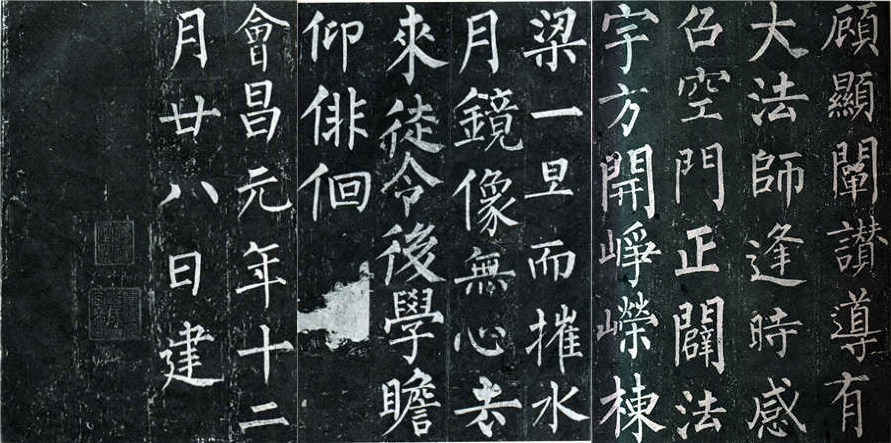 顧顯闡讚導有
大法師逢時感
召空門正闢法
宇方開崢嶸棟
梁一旦而摧水
月鏡像無心去
來徒令後學瞻
仰俳佪
會昌元年十二
月廿八日建